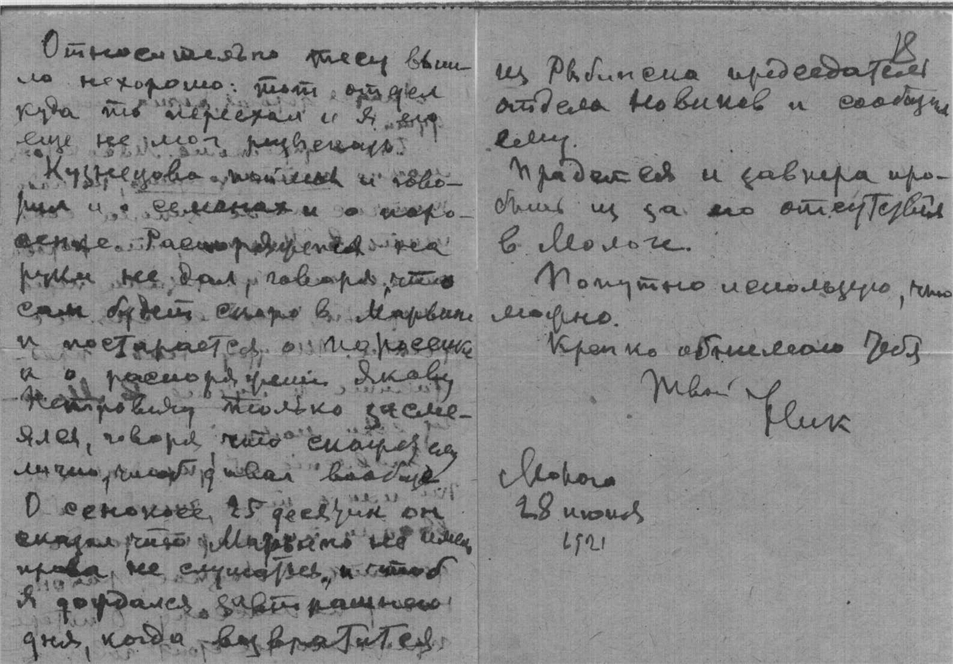 Относительно тесу вышло
ло нехорошо: тот отдел
куда то переехал и я его
еще не мог разыскать.
Кузнецова поймал и гово-
рил и о семенах и о поро-
сенке. Распоряжения на
руки не дал, говоря, что
сам будет скоро в Марьине
и постарается о поросенке
и о распоряжении Якову
Петровичу только засме-
ялся, говоря, что скажет ему
лично, чтоб давал вообще
О сенокосе 25 десятин он
сказал что Марьино не имеет
права не слушаться, и чтоб
я дождался завтрашнего
дня, когда возвратится
18
из Рыбинска председатель
отдела Новиков и сообщил
ему.
Придется и завтра про-
быть из за его отсутствия
в Мологе.
Попутно использую, что
можно.
Крепко обнимаю Тебя
Твой Ник
Молога
28 июня
1921